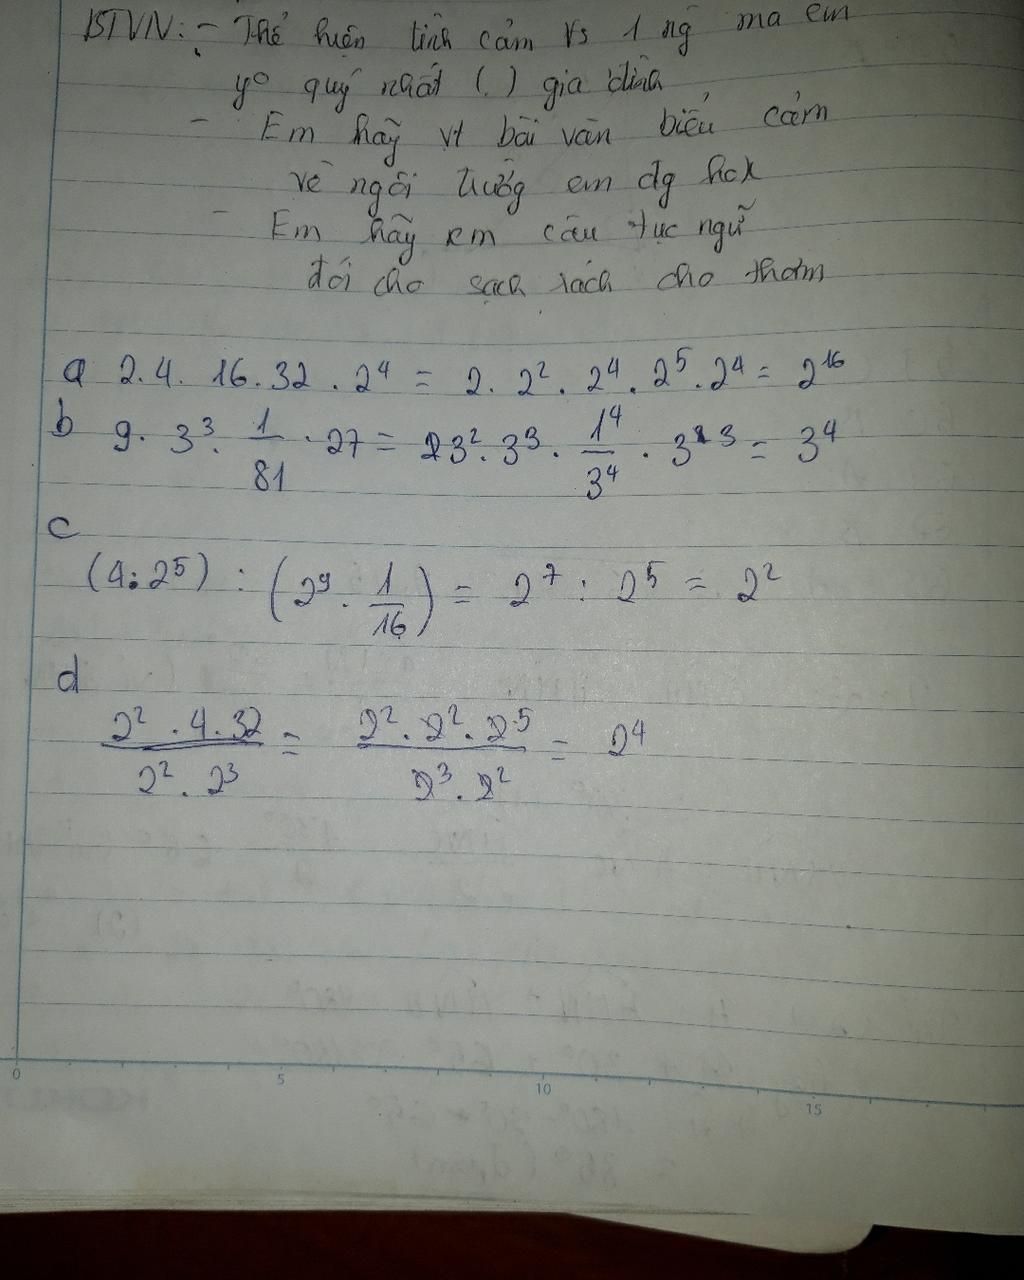 BTVN: - Thể hiện tình cảm vs 1 ng mà em
yo quý nhất (.) gia đình
- Em hãy vt bài văn biểu cảm
về ngôi trường em đg hck
- Em hãy xem câu tục ngữ
đói cho sạch rách cho thơm
a 2.4. 16.32 . 2⁴ = 2. 2². 2⁴. 2⁵. 2⁴ = 2¹⁶
b 9. 3³. 1/81 . 27 = 3². 3³. 1⁴/3⁴ . 3³ = 3⁴
c
(4.2⁵) : (2⁹. 1/16) = 2⁷ : 2⁵ = 2²
d
2² . 4. 32 / 2² . 2³ = 2². 2². 2⁵ / 2³. 2² = 2⁴
0 5 10 15